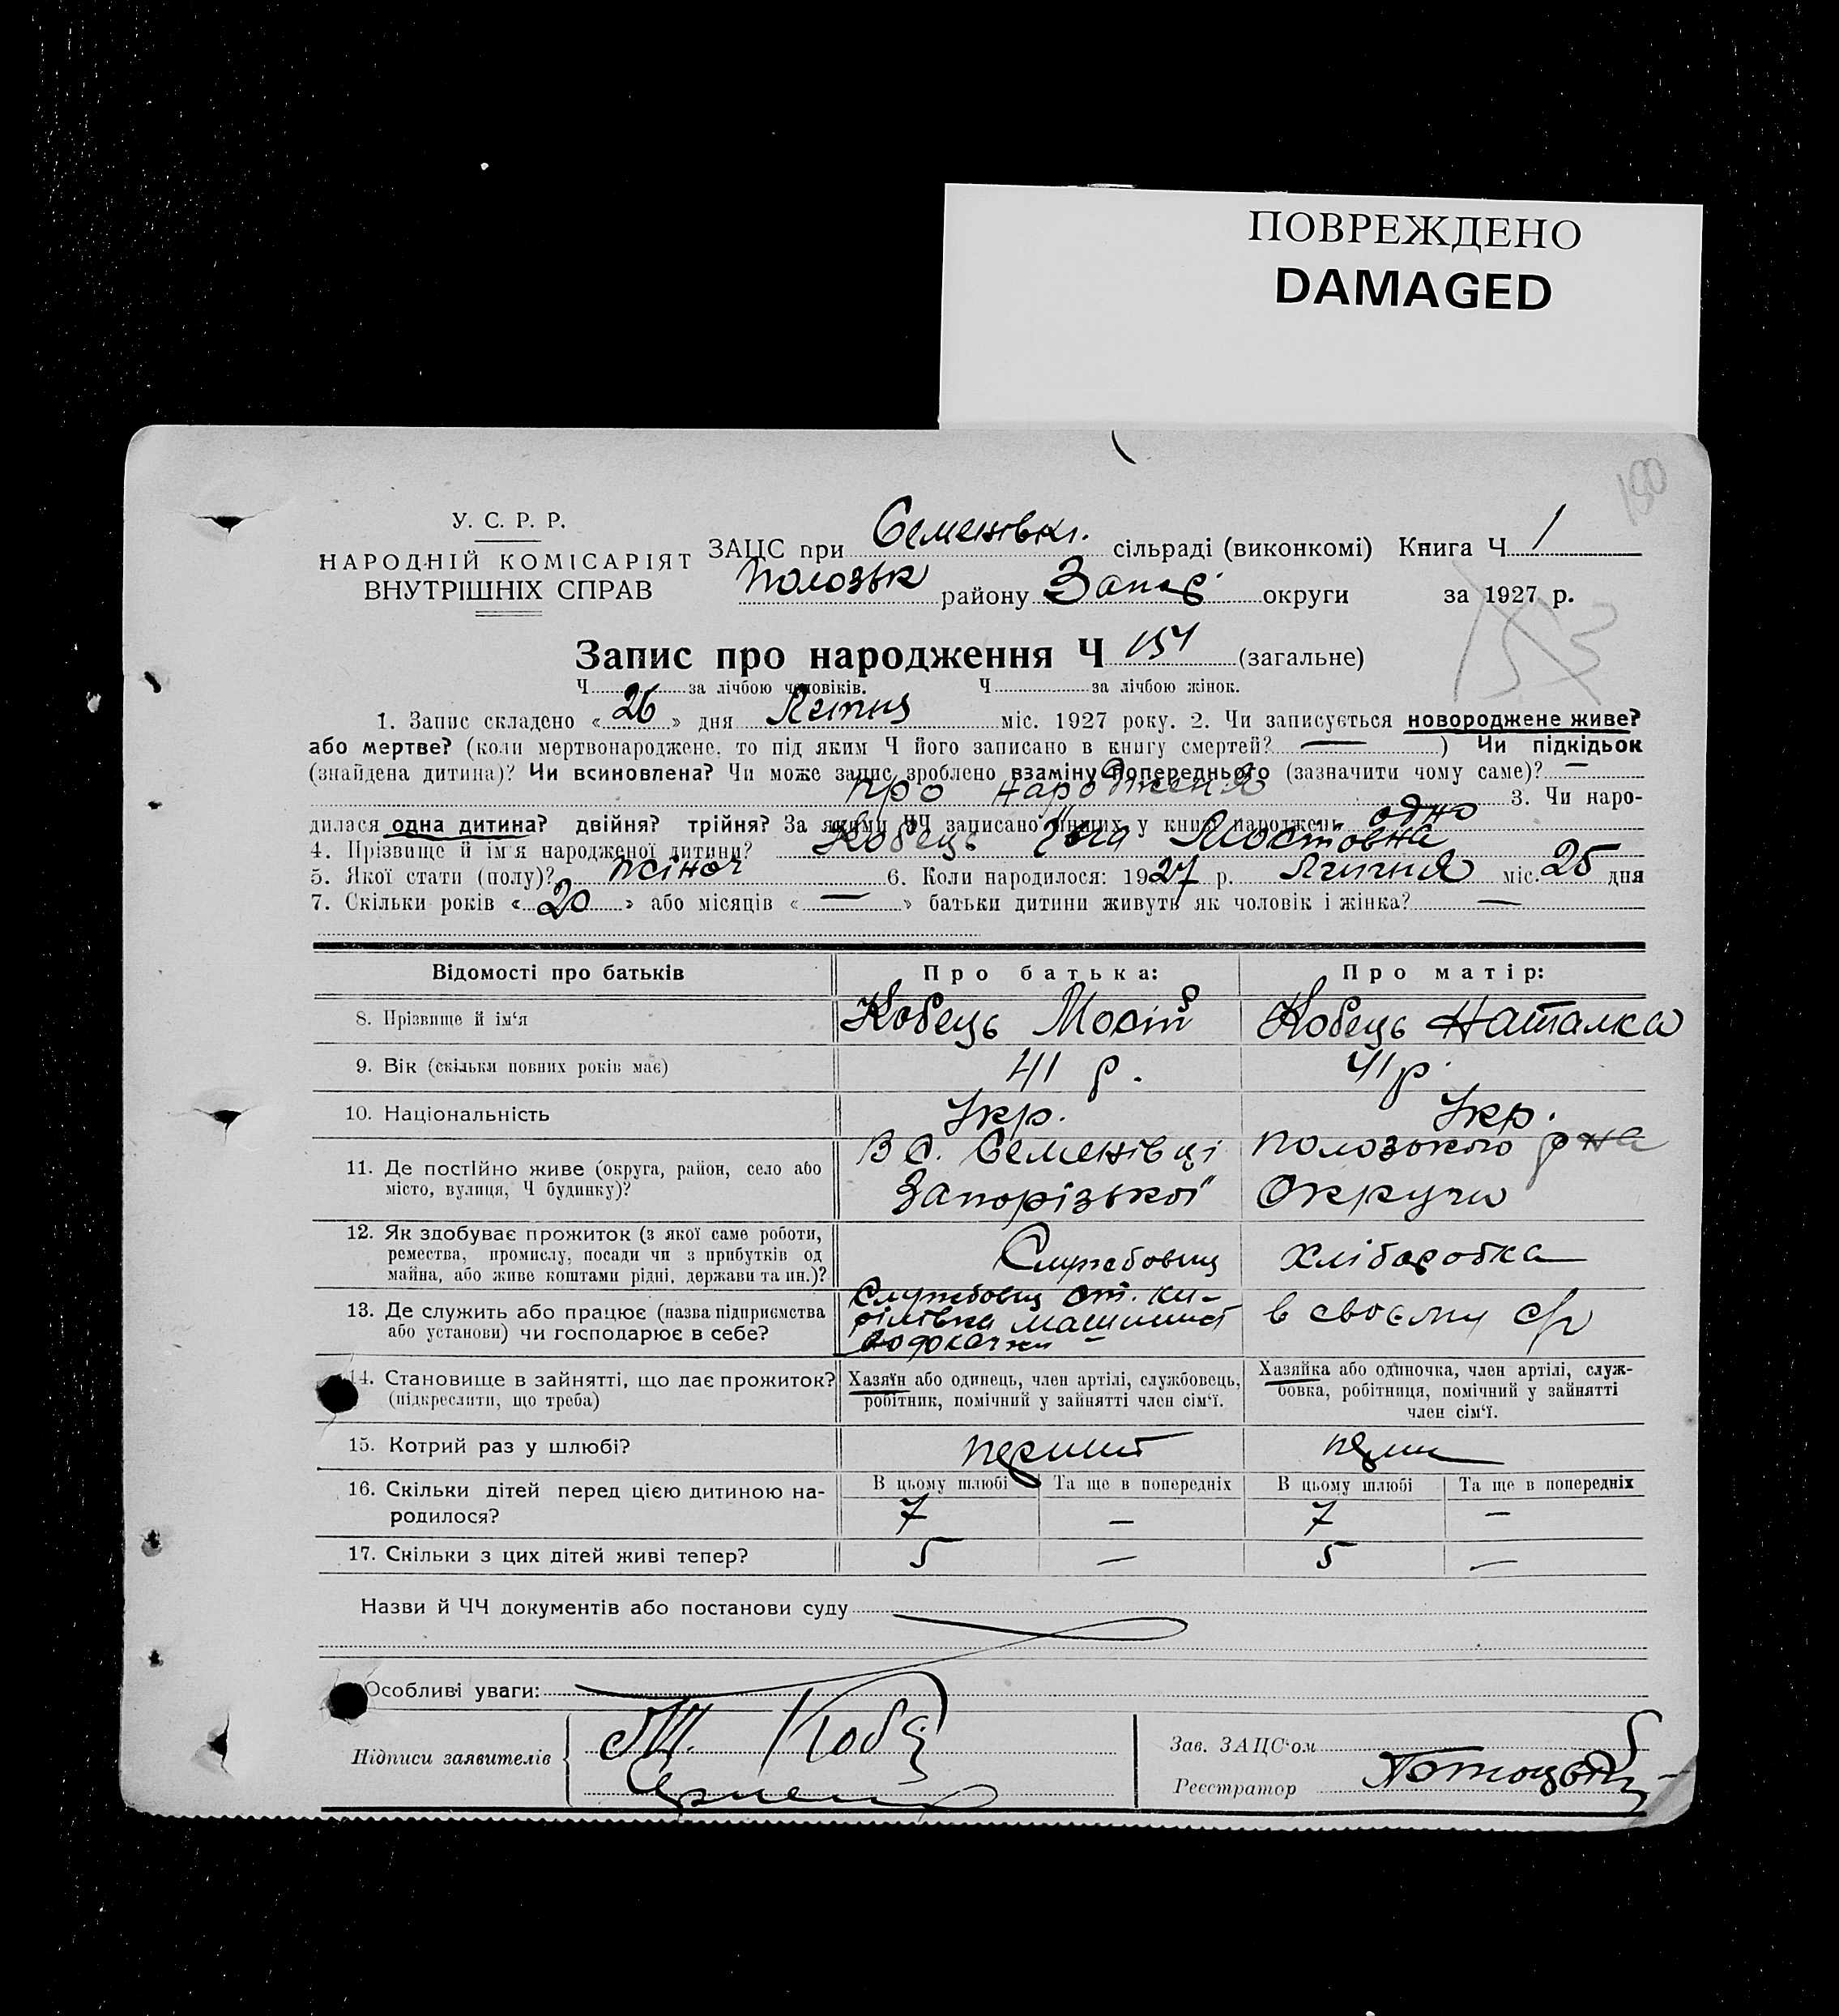 ПОВРЕЖДЕНО
DAMAGED
190
У. С. Р. Р.
НАРОДНІЙ КОМІСАРІЯТ
ВНУТРІШНІХ СПРАВ
ЗАЦС при Семенівкі. сільраді (виконкомі) Книга Ч 1
Полозьк району Запор округи за 1927 р.
153
Запис про народження Ч 154 (загальне)
Ч за лічбою чоловіків. Ч за лічбою жінок.
1. Запис складено « 26 » дня міс. 1927 року. 2. Чи записується новороджене живе?
або мертве? (коли мертвонароджене, то під яким Ч його записано в книгу смертей? — ) Чи підкідьок
(знайдена дитина)? Чи всиновлена? Чи може запис зроблено взаміну попереднього (зазначити чому саме)? —
про народженя 3. Чи наро-
дилася одна дитина? двійня? трійня? За якими ЧЧ записано інших у книзі народжень одно
4. Прізвище й ім'я народженої дитини? Кобець
5. Якої стати (полу)? жіноч 6. Коли народилося: 1927 р. міс. 25 дня
7. Скільки років « 20 » або місяців « — » батьки дитини живуть як чоловік і жінка? —
Відомості про батьків Про батька: Про матір:
8. Прізвище й ім'я Кобець Кобець Наталка
9. Вік (скільки повних років має) 41 р. 41 р.
10. Національність Укр. Укр.
11. Де постійно живе (округа, район, село або місто, вулиця, Ч будинку)? В с. Семенівці Полозького р-на
Запорізької Округи
12. Як здобуває прожиток (з якої саме роботи,
ремества, промислу, посади чи з прибутків од
майна, або живе коштами рідні, держави та ин.)? Службовец хліборобка
13. Де служить або працює (назва підприємства
або установи) чи господарює в себе? Службовец ст. Ки-
рілівка машиніст
водокачки — в своєму с/г
14. Становище в зайнятті, що дає прожиток?
(підкреслити, що треба)
Хазяїн або одинець, член артілі, службовець,
робітник, помічний у зайнятті член сім'ї.
Хазяйка або одиночка, член артілі, служ-
бовка, робітниця, помічний у зайнятті
член сім'ї.
15. Котрий раз у шлюбі? перший перш
16. Скільки дітей перед цією дитиною на-
родилося?
В цьому шлюбі Та ще в попередніх В цьому шлюбі Та ще в попередніх
7 — 7 —
17. Скільки з цих дітей живі тепер? 5 — 5 —
Назви й ЧЧ документів або постанови суду
Особливі уваги:
Підписи заявителів
Зав. ЗАЦС'ом
Реєстратор